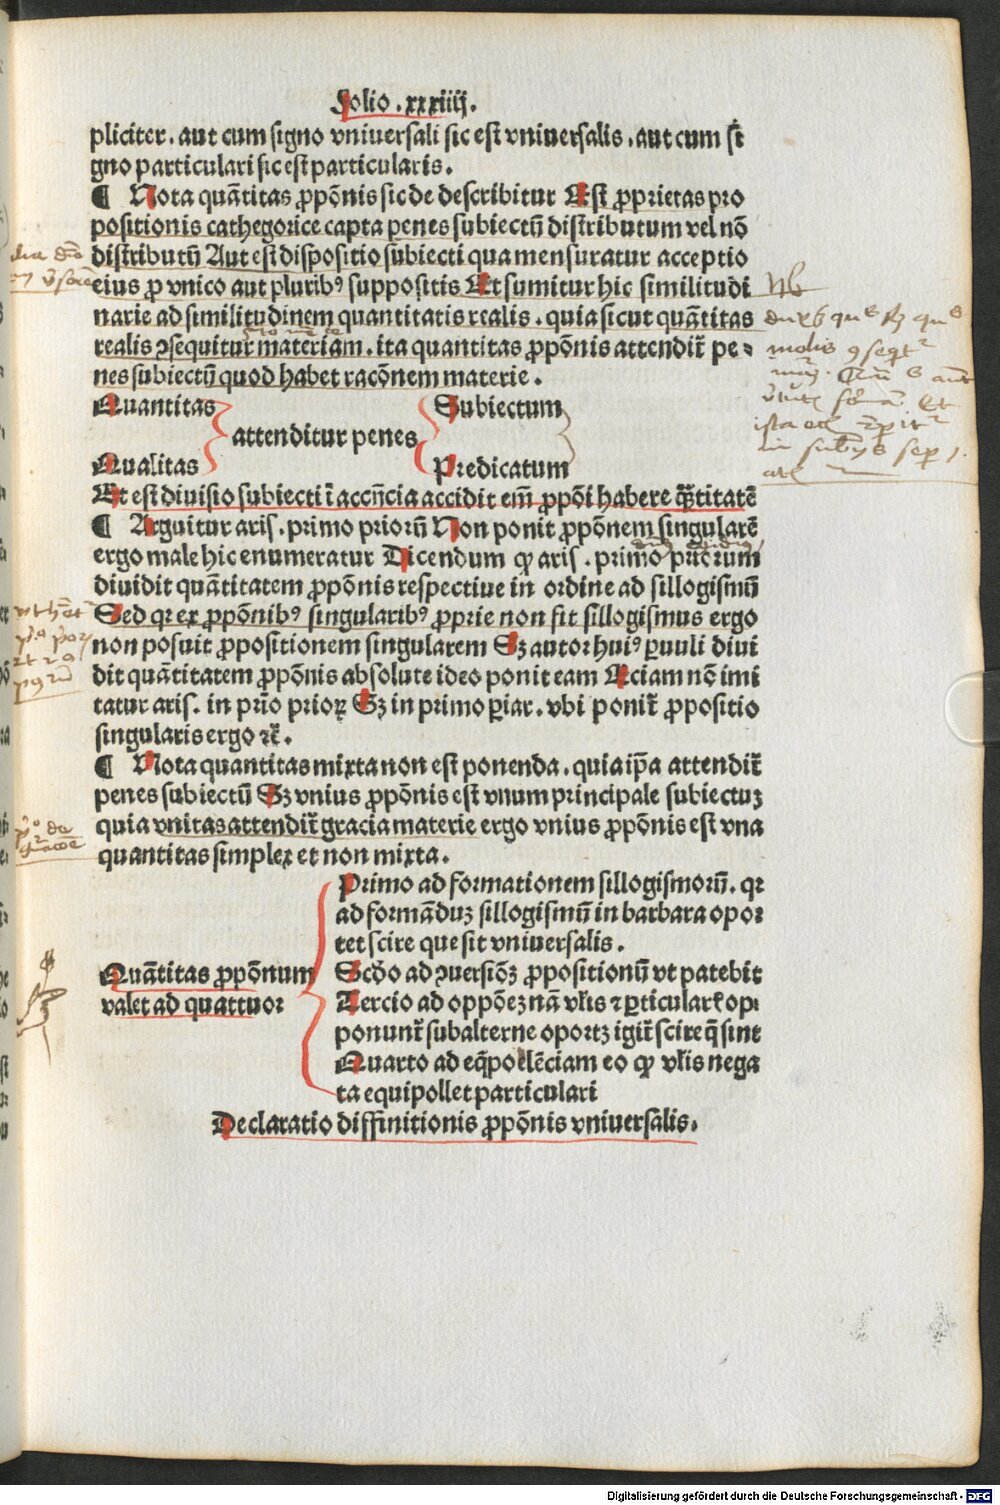 Folio .xxxiiij.
pliciter. aut cum signo vniuersali sic est vniuersalis. aut cum si
gno particulari sic est particularis.
¶ Nota quātitas ꝓpōnis sic de describitur Est ꝓprietas pro
positionis cathegorice capta penes subiectū distributum vel nō
distributū Aut est dispositio subiecti qua mensuratur acceptio
eius ꝓ vnico aut pluribꝰ suppositis Et sumitur hic similitudi
narie ad similitudinem quantitatis realis. quia sicut quātitas
realis ꝯsequitur materiam. ita quantitas ꝓpōnis attendit̃ pe⸗
nes subiectū quod habet racōnem materie.
Quantitas
Qualitas
attenditur penes
Subiectum
Predicatum
Et est diuisio subiecti ī accñcia accidit em̄ ꝓpōi habere q̄titatē
¶ Arguitur aris. primo priorū Non ponit ꝓpōnem singularē
ergo male hic enumeratur Dicendum ꝙ aris. primo priorum
diuidit quātitatem ꝓpōnis respectiue in ordine ad sillogismū
Sed qꝛ ex ꝓpōnibꝰ singularibꝰ ꝓprie non fit sillogismus ergo
non posuit ꝓpositionem singularem Sꝫ autor huiꝰ ꝑuuli diui
dit quātitatem ꝓpōnis absolute ideo ponit eam Eciam nō imi
tatur aris. in prio prioꝝ Sꝫ in primo ꝑiar. vbi ponit̃ ꝓpositio
singularis ergo ⁊c̃.
¶ Nota quantitas mixta non est ponenda. quia ip̄a attendit̃
penes subiectū Sꝫ vnius ꝓpōnis est vnum principale subiectuꝫ
quia vnitas attendit̃ gracia materie ergo vnius ꝓpōnis est vna
quantitas simplex et non mixta.
Quātitas ꝓpōnum
valet ad quattuor
Primo ad formationem sillogismorū. qꝛ
ad formāduꝫ sillogismū in barbara opor
tet scire que sit vniuersalis.
Scd̄o ad ꝯuersiōꝫ ꝓpositionū vt patebit
Tercio ad oppōeꝫ nā vl̄is ⁊ ꝑticulares op⸗
ponunt̃ subalterne oportꝫ igit̃ scire q̄ sint
Quarto ad eq̄pollēciam eo ꝙ vl̄is nega
ta equipollet particulari
Declaratio diffinitionis ꝓpōnis vniuersalis.
Digitalisierung gefördert durch die Deutsche Forschungsgemeinschaft - DFG